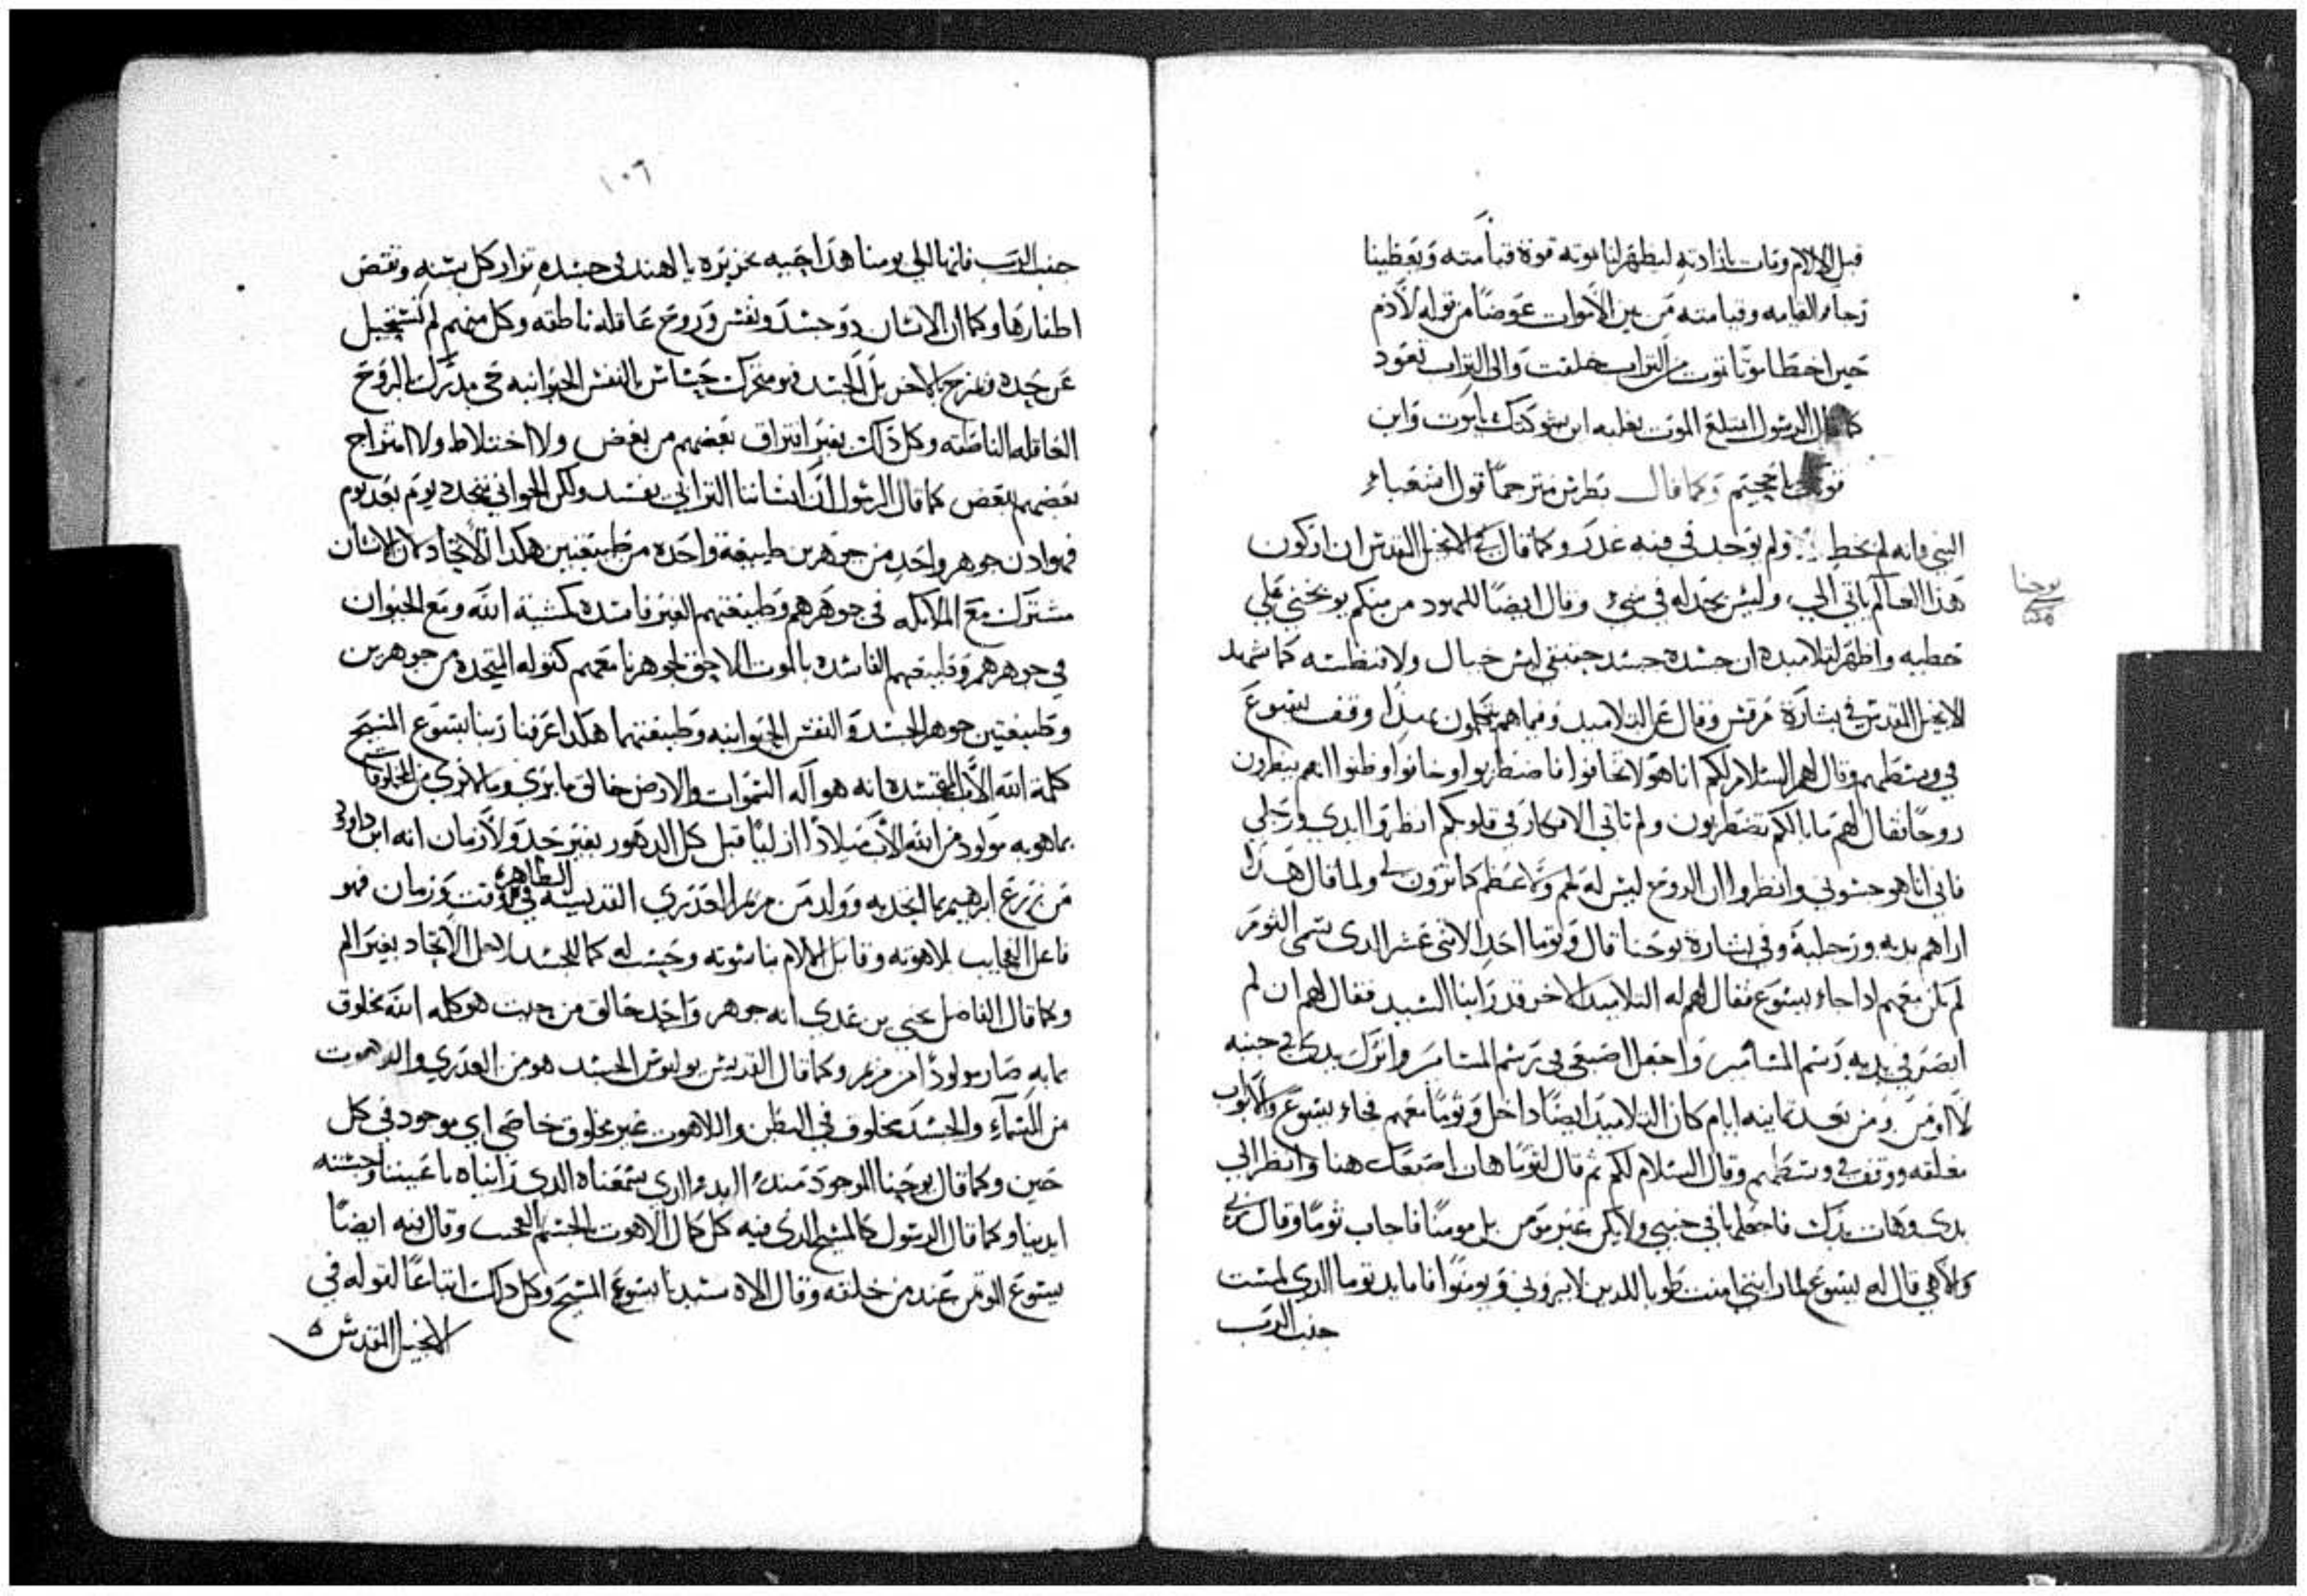 قبل الالام ومات بارادته ليظهر لنا بموته قوة قيامته ويعطينا
رجاء القيامه وقيامته من بين الاموات عوضًا من قوله لادم
حين اخطا موتًا تموت من التراب خلقت والى التراب تعود
كما قال الرسول ابتلع الموت بغلبه اين شوكتك يا موت واين
يا جحيم وكما قال بطرس مترجمًا قول اشعياء
النبي فانه لم يخط ولم يوجد في فيه غدر وكما قال في الانجيل المقدس ان اركون
هذا العالم ياتي الي وليس يجد له في شيء وقال ايضًا لليهود من منكم يوبخني على
خطيه واظهر لتلاميده ان جسده جسد حقيقي ليس خيال ولا كما شهد
الانجيل المقدس في بشارة مرقس وقال عن التلاميد وفيما هم يتكلمون بهذا وقف يسوع
في وسطهم وقال لهم السلام لكم انا هو لا تخافوا فاضطربوا وخافوا وظنوا انهم ينظرون
روحًا فقال لهم ما بالكم تضطربون ولم تاتي الافكار في قلوبكم انظروا ايدي ورجلي
فاني انا هو جسوني وانظروا ان الروح ليس له لحم ولا عظم كما ترون لي ولما قال هذا
اراهم يديه ورجليه وفي بشارة يوحنا قال وتوما احد الاتني عشر الدي يسمى التوم
لم يكن معهم اد جاء يسوع فقال له التلاميد الاخر قد راينا السيد فقال لهم ان لم
ابصر في يديه رسم المسامير واجعل اصبعي في رسم المسامير واترك يدي في جنبه
لا اومن ومن بعد تمانيه ايام كان التلاميد ايضًا داخل وتوما معهم فجاء يسوع والابواب
مغلقه ووقف في وسطهم وقال السلام لكم ثم قال لتوما هات اصبعك هنا وانظر الى
يدي وهات يدك فاجعلها في جنبي ولا تكن غير مومن بل مومنًا فاجاب توما وقال ربي
والاهي قال له يسوع لما رايتني امنت طوبا للدين لا يروني ويومنوا فاما يد توما الدي لمست
جنب الرب
يوحنا
١٠٦
جنب الرب فانها الى يومنا هذا بجزيره بالهند في جسده تزار كل سنه وتقص
اظفارها وكما ان الانسان دو جسد ونفس وروح عاقله ناطقه وكل منهم لم يستحيل
بالاخر بل الجسد فهو متحرك حساس بالنفس الحيوانيه حي مدرك بالروح
العاقله الناطقه وكل دلك بغير افتراق بعضهم من بعض ولا اختلاط ولا امتزاج
بعضهم ببعض كما قال الرسول ان انساننا البراني يفسد ولكن الجواني يتجدد يوم بعد يوم
فهو ادن جوهر واحد من جوهرين طبيعة واحده من طبيعتين هكدا الاتحاد لان الانسان
مشترك مع الملايكه في جوهرهم وطبيعتهم الغير فاسده كمشية الله ومع الحيوان
في جوهرهم وطبيعتهم الفاسده بالموت جوهرنا معهم كقوله المتحده من جوهرين
وطبيعتين جوهر الجسد والنفس الحيوانيه وطبيعتهما هكدا عرفنا ربنا يسوع المسيح
كلمة الله الاب المتجسده انه هو اله السموات والارض خالق ما يرى وما لا يرى من المخلوقات
بما هو به مولود من الله الاب ميلادًا ازليًا قبل كل الدهور بغير حد ولا زمان انه ابن داود
من زرع ابرهيم بما اتحد به وولد من مريم العدرى القديسه الطاهره في وقت وزمان فهو
فاعل العجايب بلاهوته وقابل الالام بناسوته وحسبت له كما للجسد لاجل الاتحاد بغير الم
وكما قال الفاضل يحيى بن عدي انه جوهر واحد خالق من حيث هو كلمه الله مخلوق
بما به صار مولودًا من مريم وكما قال القديس بولوس الجسد هو من العدرى واللاهوت
من السماء والجسد مخلوق في البطن واللاهوت غير مخلوق خاصي اي موجود في كل
حين وكما قال يوحنا الموجود مند البدء الدي سمعناه الدي رايناه باعيننا وجسته
ايدينا وكما قال الرسول كالمسيح الدي فيه كل كمال الاهوت بالجسم العجب وقال فيه ايضًا
يسوع عند من خلقه وقال الاه سيدنا يسوع المسيح وكل دلك اتباعًا لقوله في
الانجيل المقدس